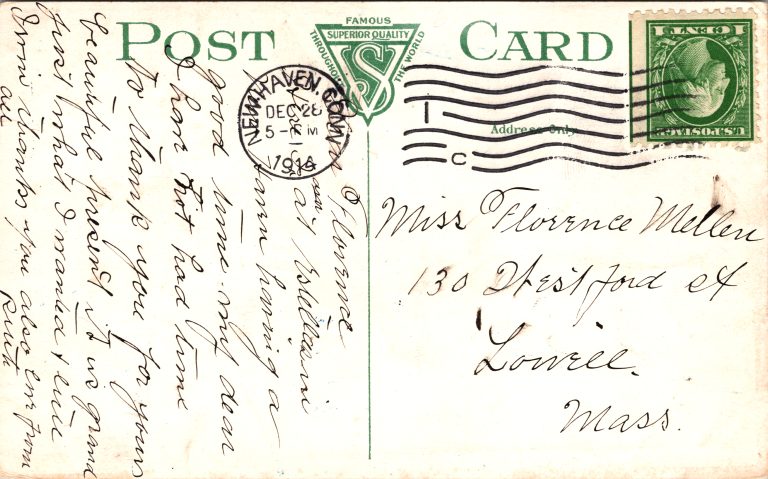 POST CARD
FAMOUS
THROUGHOUT THE WORLD
SUPERIOR QUALITY
VS
NEW HAVEN, CONN.
DEC 28
5- PM
1914
1
C
Address Only
U.S. POSTAGE
1 CENT 1
Miss Florence Mellen
130 Westford st
Lowell.
Mass.
Florence
am at
am having a
good time my dear
I have not had time
to thank you for your
beautiful present it is grand
just what I wanted
Irvin thanks you also love from
all Ruth